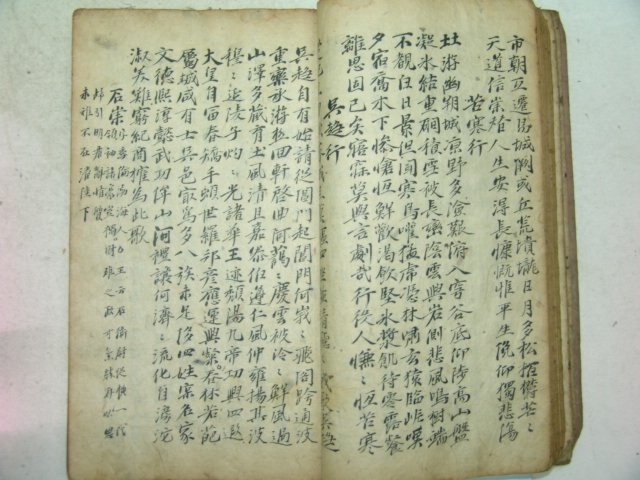 市朝互遷易城闕或丘荒墳壠日月多松栢鬱芒〻
天道信崇替人生安得長慷慨惟平生俛仰獨悲傷
苦寒行
北游幽朔城凉野多險艱俯入穹谷底仰陟高山盤
凝氷結重磵積雪被長巒陰雲興岩側悲風鳴樹端
不覩白日景但聞寒鳥喧猛虎憑林嘯玄猿臨岸嘆
夕宿喬木下慘愴恒鮮歡渴飮堅氷漿飢待零露餐
離思固已久寤寐莫與言劇哉行役人慊〻恒苦寒
吳趨行
吳趨自有始請從閶門起閶門何峩〻飛閣跨通波
重欒承游極回軒啓曲阿藹〻慶雲被泠〻鮮風過
山澤多藏育土風清且嘉泰伯導仁風仲雍揚其波
穆〻延陵子灼〻光諸華王迹隤陽九帝功興四遐
大皇自富春矯手頓世羅邦彦應運興粲春林若葩
屬城咸有士吳邑最爲多八族未足侈四姓實名家
文德熙淳懿武功侔山河禮讓何濟〻流化自滂沱
淑美難窮紀商搉爲此歌
石崇